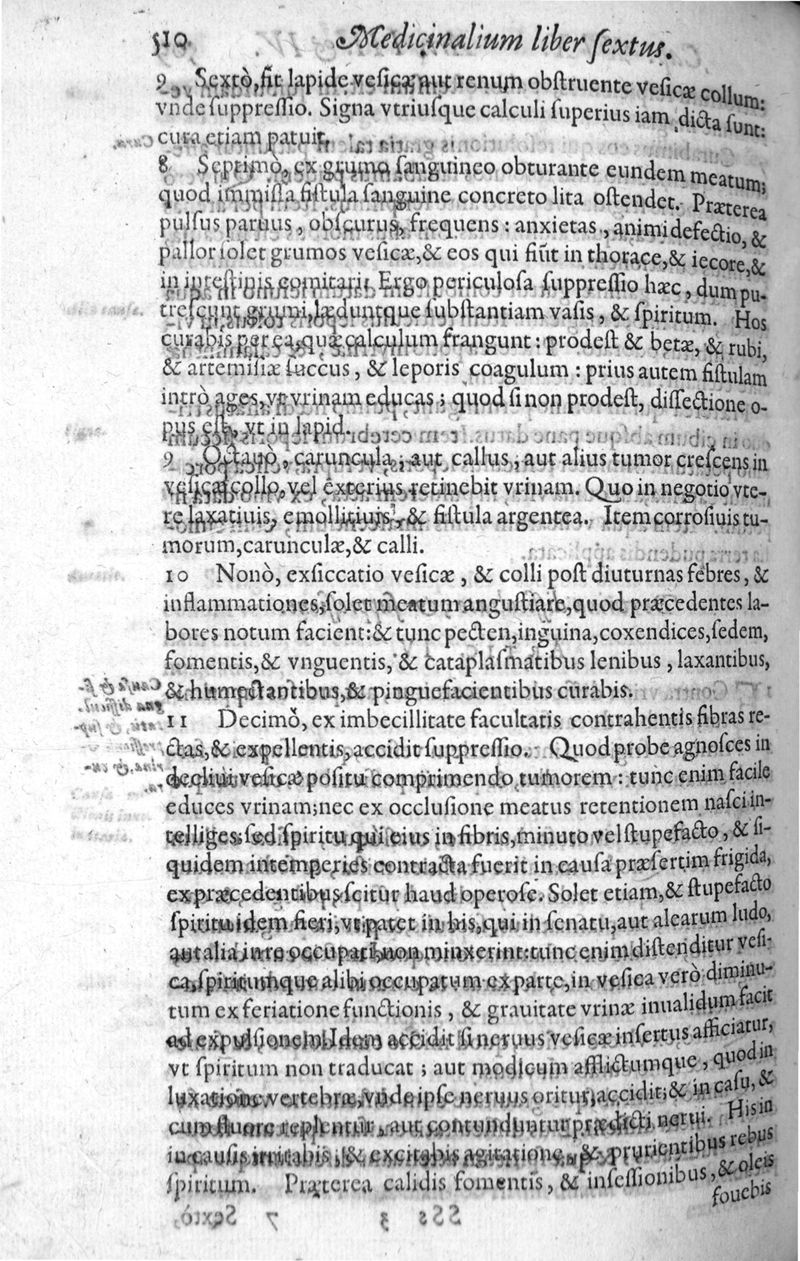 510 Medicinalium liber ſextus.
9 Sextò, fit lapide veſicæ aut renum obſtruente veſicæ collum:
vnde ſuppreſſio. Signa vtriuſque calculi ſuperius iam dicta ſunt:
cura etiam patuit.
8 Septimò, ex grumo ſanguineo obturante eundem meatum;
quod immiſſa fiſtula ſanguine concreto lita oſtendet. Præterea
pulſus paruus, obſcurus, frequens: anxietas, animi defectio, &
pallor ſolet grumos veſicæ, & eos qui fiũt in thorace, & iecore, &
in inteſtinis comitari. Ergo periculoſa ſuppreſſio hæc, dum pu-
treſcunt grumi, læduntque ſubſtantiam vaſis, & ſpiritum. Hos
curabis per ea, quæ calculum frangunt: prodeſt & betæ, & rubi,
& artemiſiæ ſuccus, & leporis coagulum: prius autem fiſtulam
intrò ages, vt vrinam educas; quod ſi non prodeſt, diſſectione o-
pus eſt, vt in lapid.
9 Octauò, caruncula, aut callus, aut alius tumor creſcens in
veſicæ collo, vel exterius, retinebit vrinam. Quo in negotio vte-
re laxatiuis, emollitiuis, & fiſtula argentea. Item corroſiuis tu-
morum, carunculæ, & calli.
10 Nonò, exſiccatio veſicæ, & colli poſt diuturnas febres, &
inflammationes, ſolet meatum anguſtiare, quod præcedentes la-
bores notum facient: & tunc pecten, inguina, coxendices, ſedem,
fomentis, & vnguentis, & cataplaſmatibus lenibus, laxantibus,
& humectantibus, & pinguefacientibus curabis.
11 Decimò, ex imbecillitate facultatis contrahentis fibras re-
ctas, & expellentis, accidit ſuppreſſio. Quod probe agnoſces in
decliui veſicæ poſitu comprimendo tumorem: tunc enim facile
educes vrinam; nec ex occluſione meatus retentionem naſci in-
telliges, ſed ſpiritu, qui eius in fibris, minuto vel ſtupefacto, & ſi-
quidem intemperies contracta fuerit in cauſa præſertim frigida,
ex præcedentibus ſcitur haud operoſe. Solet etiam, & ſtupefacto
ſpiritu idem fieri, vt patet in his, qui in ſenatu, aut alearum ludo,
aut alia in re occupati, non minxerint: tunc enim diſtenditur veſi-
ca, ſpiritumque alibi occupatum ex parte, in veſica verò diminu-
tum ex feriatione functionis, & grauitate vrinæ inualidum facit
ad expulſionem. Idem accidit ſi neruus veſicæ inſertus afficiatur,
vt ſpiritum non traducat; aut modicum afflictumque, quod in
luxatione vertebræ, vnde ipſe neruus oritur, accidit; & in caſu, &
cum fluore replentur, aut contunduntur prædicti nerui. His in
in cauſis irritabis, & excitabis agitatione, & prurientibus rebus
ſpiritum. Præterea calidis fomentis, & inſeſſionibus, & oleis
fouebis